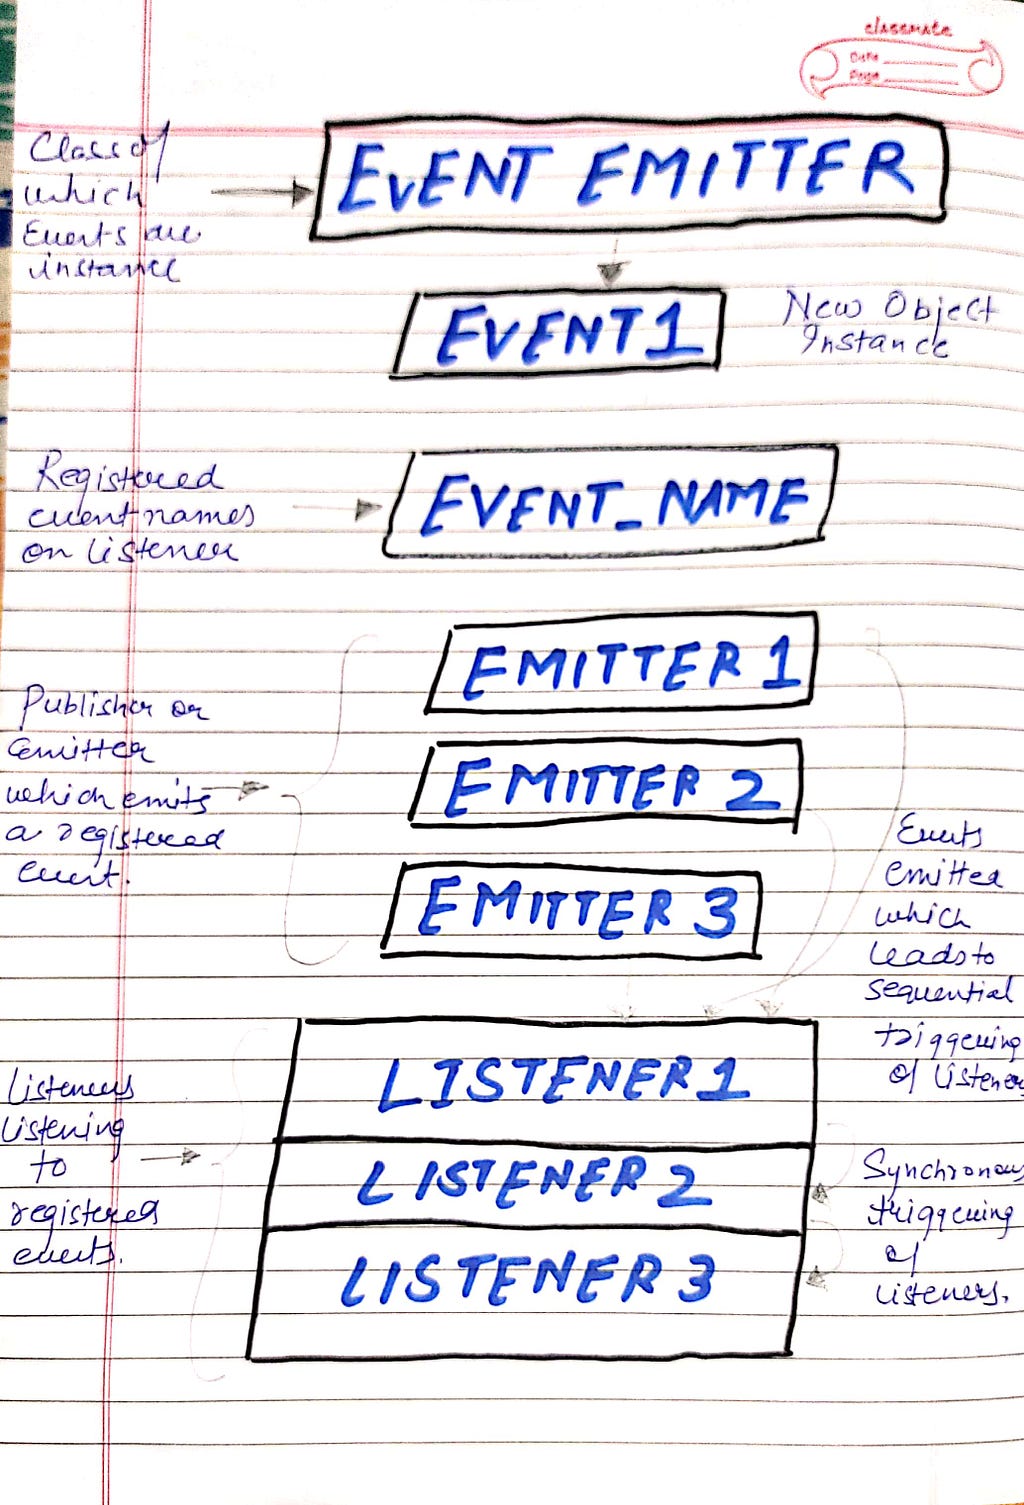 classmate
Date
Page
Class of
which
Events are
instance
EVENT EMITTER
EVENT1
New Object
Instance
Registered
event names
on listener
EVENT_NAME
EMITTER 1
EMITTER 2
EMITTER 3
Publisher or
emitter
which emits
a registered
event.
Events
emitter
which
leads to
sequential
triggering
of listener
LISTENER1
LISTENER2
LISTENER3
Listeners
listening
to
registered
events.
Synchronous
triggering
of
listeners.